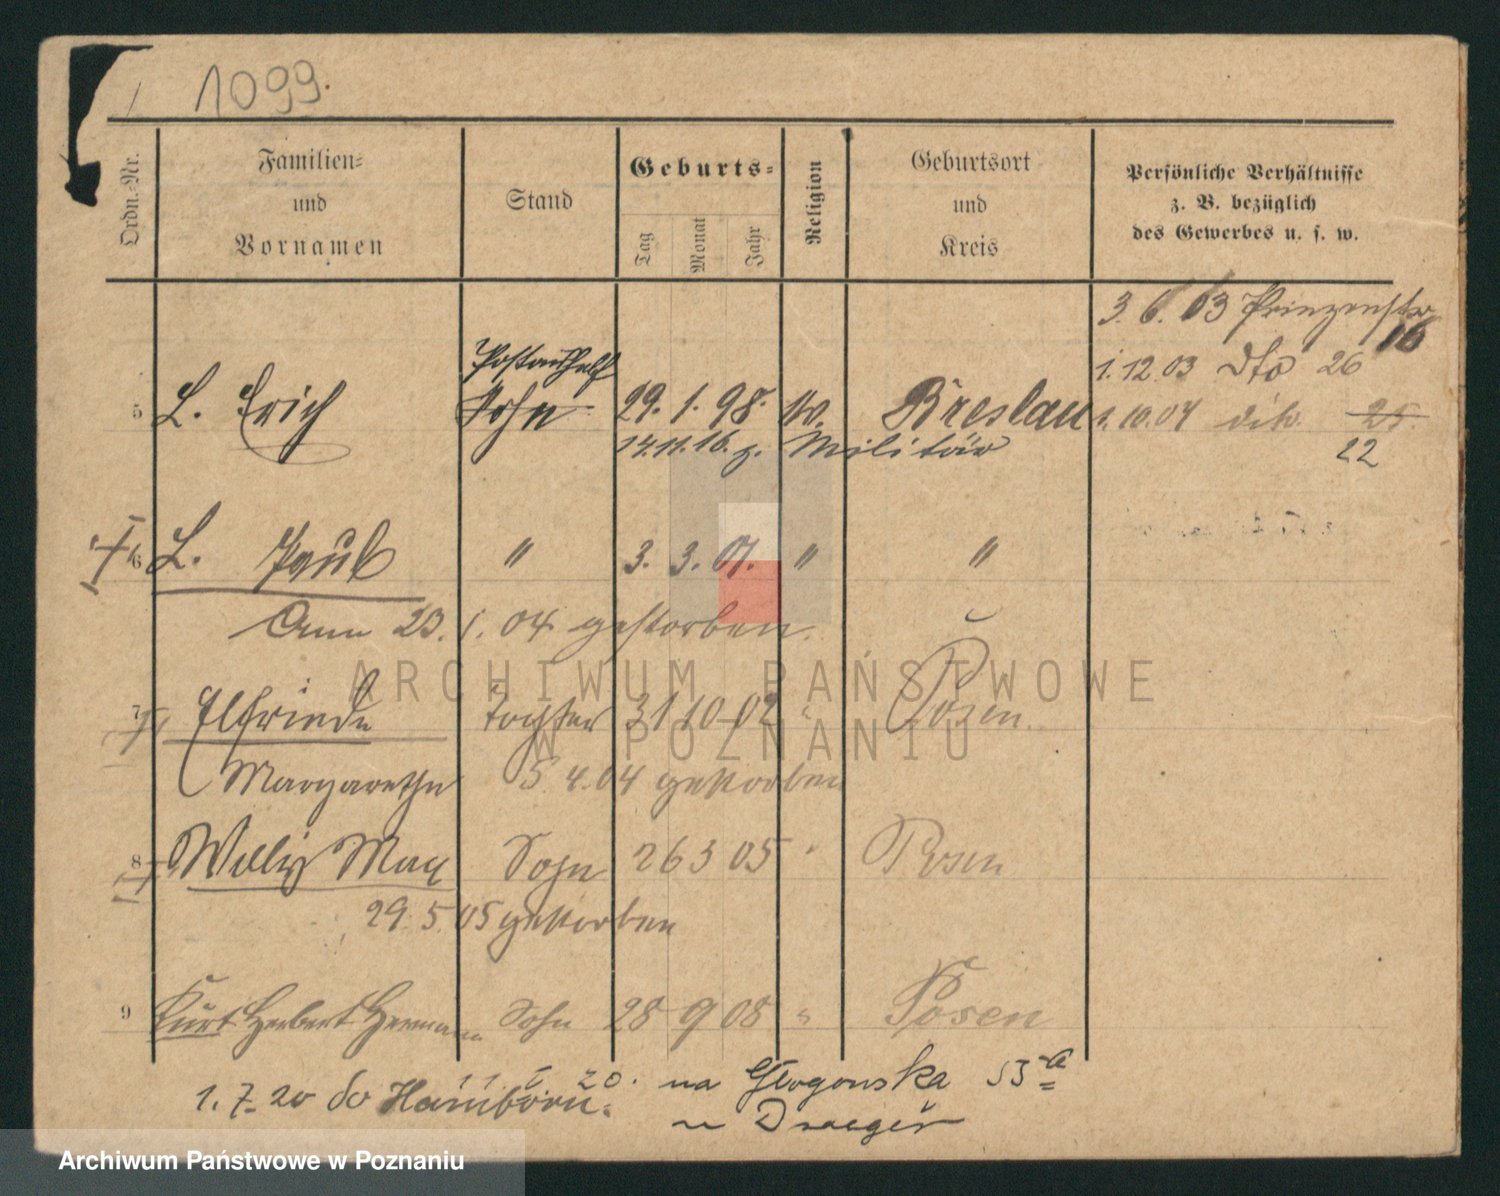 1099.
Ordn.-Nr.
Familien=
und
Vornamen
Stand
Geburts=
Tag
Monat
Jahr
Religion
Geburtsort
und
Kreis
Persönliche Verhältnisse
z. B. bezüglich
des Gewerbes u. s. w.
3. 6. 03 Prinzenstr
16
1. 12. 03 dto 26
Postaushelf
5 L. Erich Sohn 29. 1. 98. Breslau 1. 10. 04 25.
14.11.16. z. Militär 22
6 L. Paul " 3. 3. 01. " "
Am 23. 1. 04 gestorben.
7 Elfriede Tochter 31 10 02 " Posen
Margarethe 5. 4. 04 gestorben
8 Willy Max Sohn 26 3 05 " Posen
29. 5. 05 gestorben
9 Kurt Herbert Hermann Sohn 28 9 08 " Posen
20. na Glogowska 53a
1. 7. 20 do Hamborn.
u Draeger
ARCHIWUM PAŃSTWOWE
W POZNANIU
Archiwum Państwowe w Poznaniu